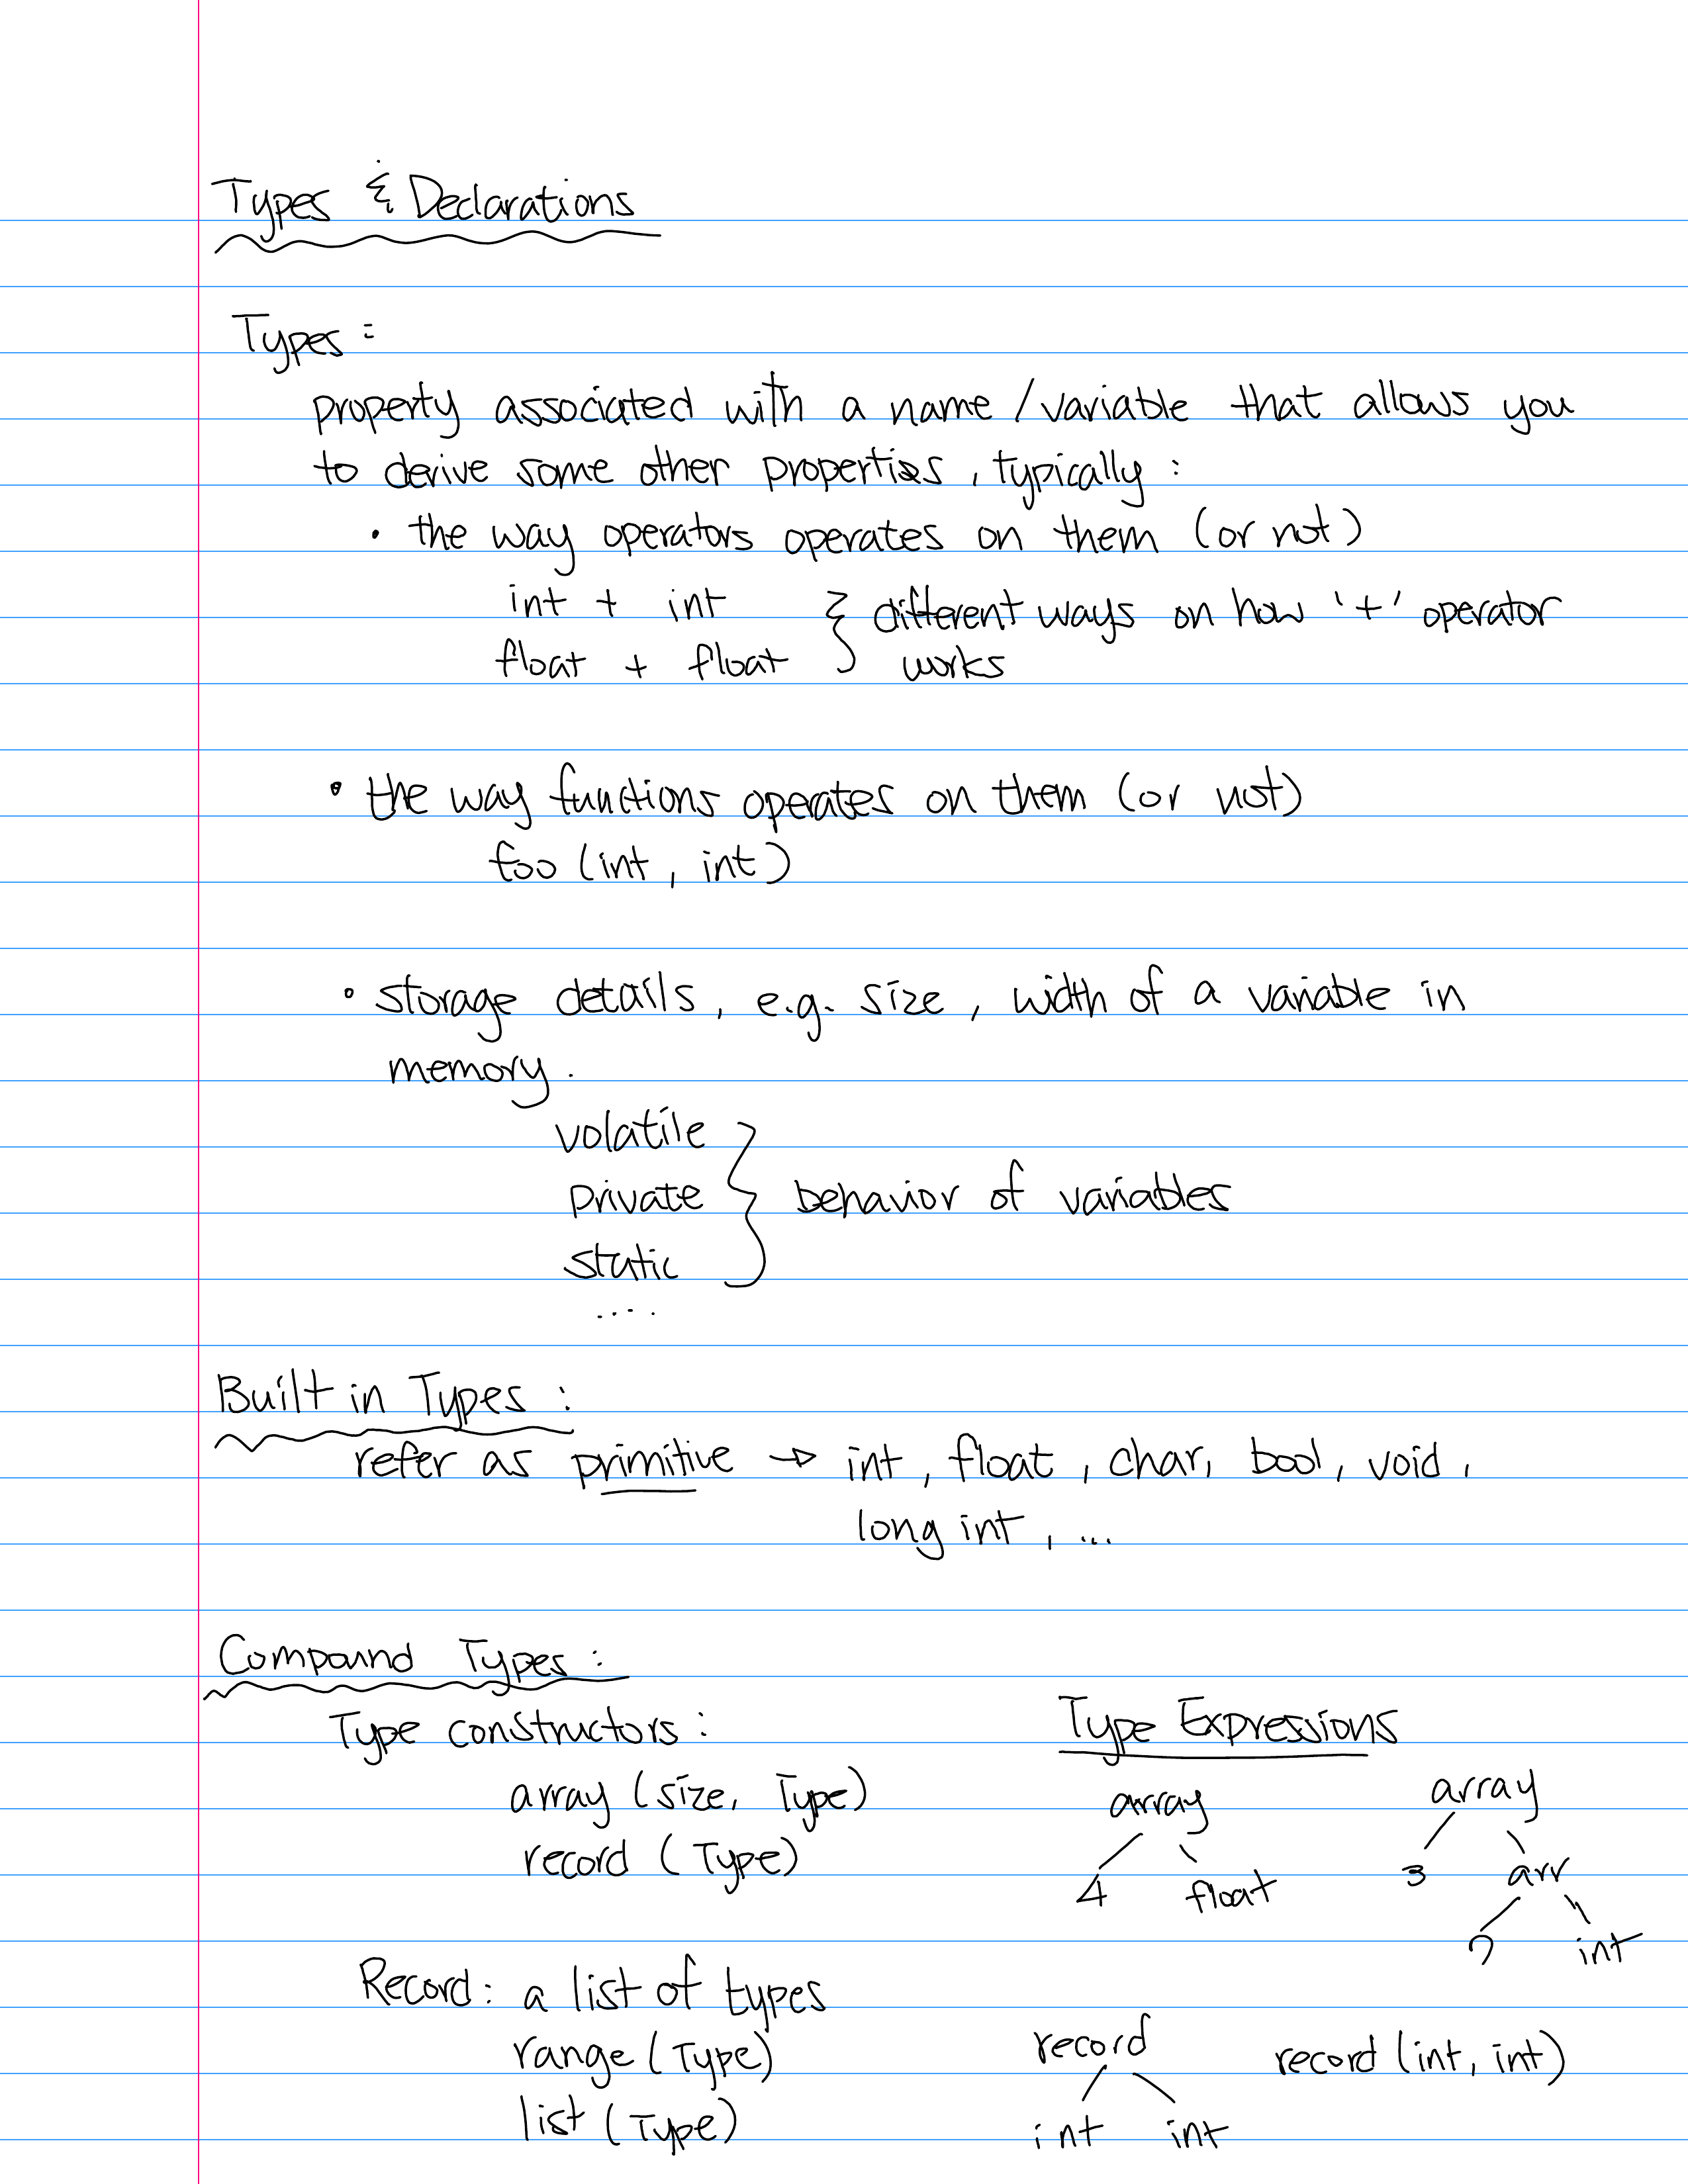 Types & Declarations
Types :
property associated with a name / variable that allows you
to derive some other properties , typically :
• the way operators operates on them (or not)
int + int } different ways on how '+' operator
float + float works
• the way functions operates on them (or not)
foo (int , int)
• storage details , e.g. size , width of a variable in
memory .
volatile
private } behavior of variables
static
....
Built in Types :
refer as primitive → int , float , char, bool , void ,
long int , ...
Compound Types :
Type constructors : Type Expressions
array (size, Type) array array
record (Type) 4 float 3 arr
int
Record : a list of types
range (Type) record record (int, int)
list (Type) int int